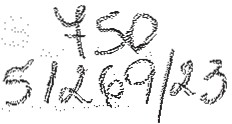 750
51269/23